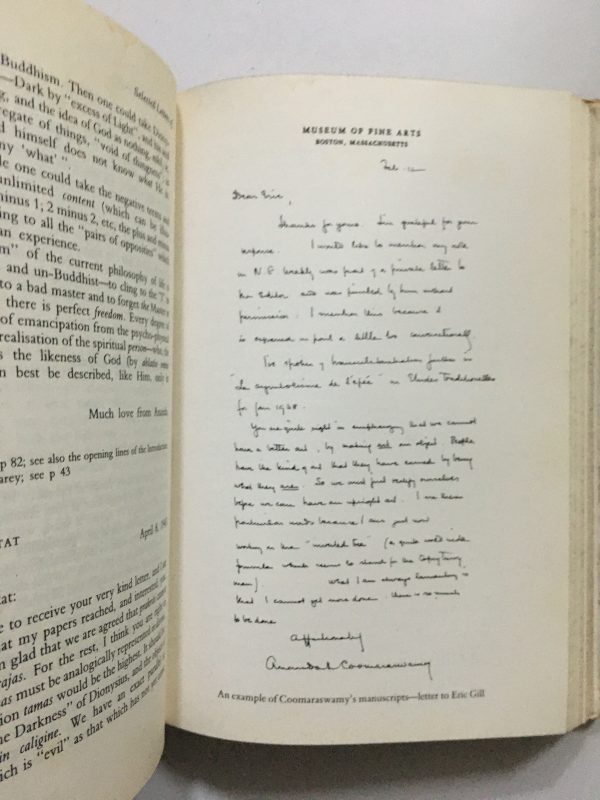 Selected Letters of
Buddhism. Then one could take
—Dark by "excess of Light", and
, and the idea of God as nothing,
regate of things, "void of thingness",
himself does not know what He is
any 'what'".
one could take the negative terms and
unlimited content (which can be
minus 1; 2 minus 2, etc, the plus and minus
ing to all the "pairs of opposites" which
an experience.
m" of the current philosophy of life is
and un-Buddhist—to cling to the "I" is
to a bad master and to forget the Master
there is perfect freedom. Every degree
of emancipation from the psycho-physical
realisation of the spiritual person—who,
s the likeness of God (by ablatio omnis
n best be described, like Him, only
Much love from Ananda
p 82; see also the opening lines of the Introduction
arey; see p 43
TAT
April 8, 194
at:
e to receive your very kind letter, and
at my papers reached, and interested, you.
m glad that we are agreed that
rajas. For the rest, I think you are right
as must be analogically represented
tion tamas would be the highest. It should
he Darkness" of Dionysius, and the
in caligine. We have an exact
ich is "evil" as that which has not
MUSEUM OF FINE ARTS
BOSTON, MASSACHUSETTS
Feb. 12
Dear Eric,
Thanks for yours. I'm grateful for your
response. I would like to mention my note
in N.E. Weekly was part of a private letter to
the Editor and was printed by him without
permission. I mention this because it
is expressed in part a little too conventionally.
I've spoken of further in
"Le symbolisme de l'épée" in Etudes Traditionelles
for Jan 1938.
You are quite right in emphasizing that we cannot
have a better art, by making art an object. People
have the kind of art that they have earned by being
what they are. So we must first occupy ourselves
before we can have an upright art. I use these
particular words because I am just now
working on the "inverted tree" (a quite world wide
formula which seems to stand for the topsy turvy
man). What I am always lamenting is
that I cannot get more done. there is so much
to be done
affectionately
Ananda K Coomaraswamy
An example of Coomaraswamy's manuscripts—letter to Eric Gill